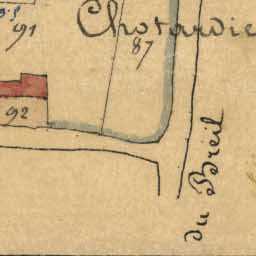 91
Chotardie
87
92
du Breil